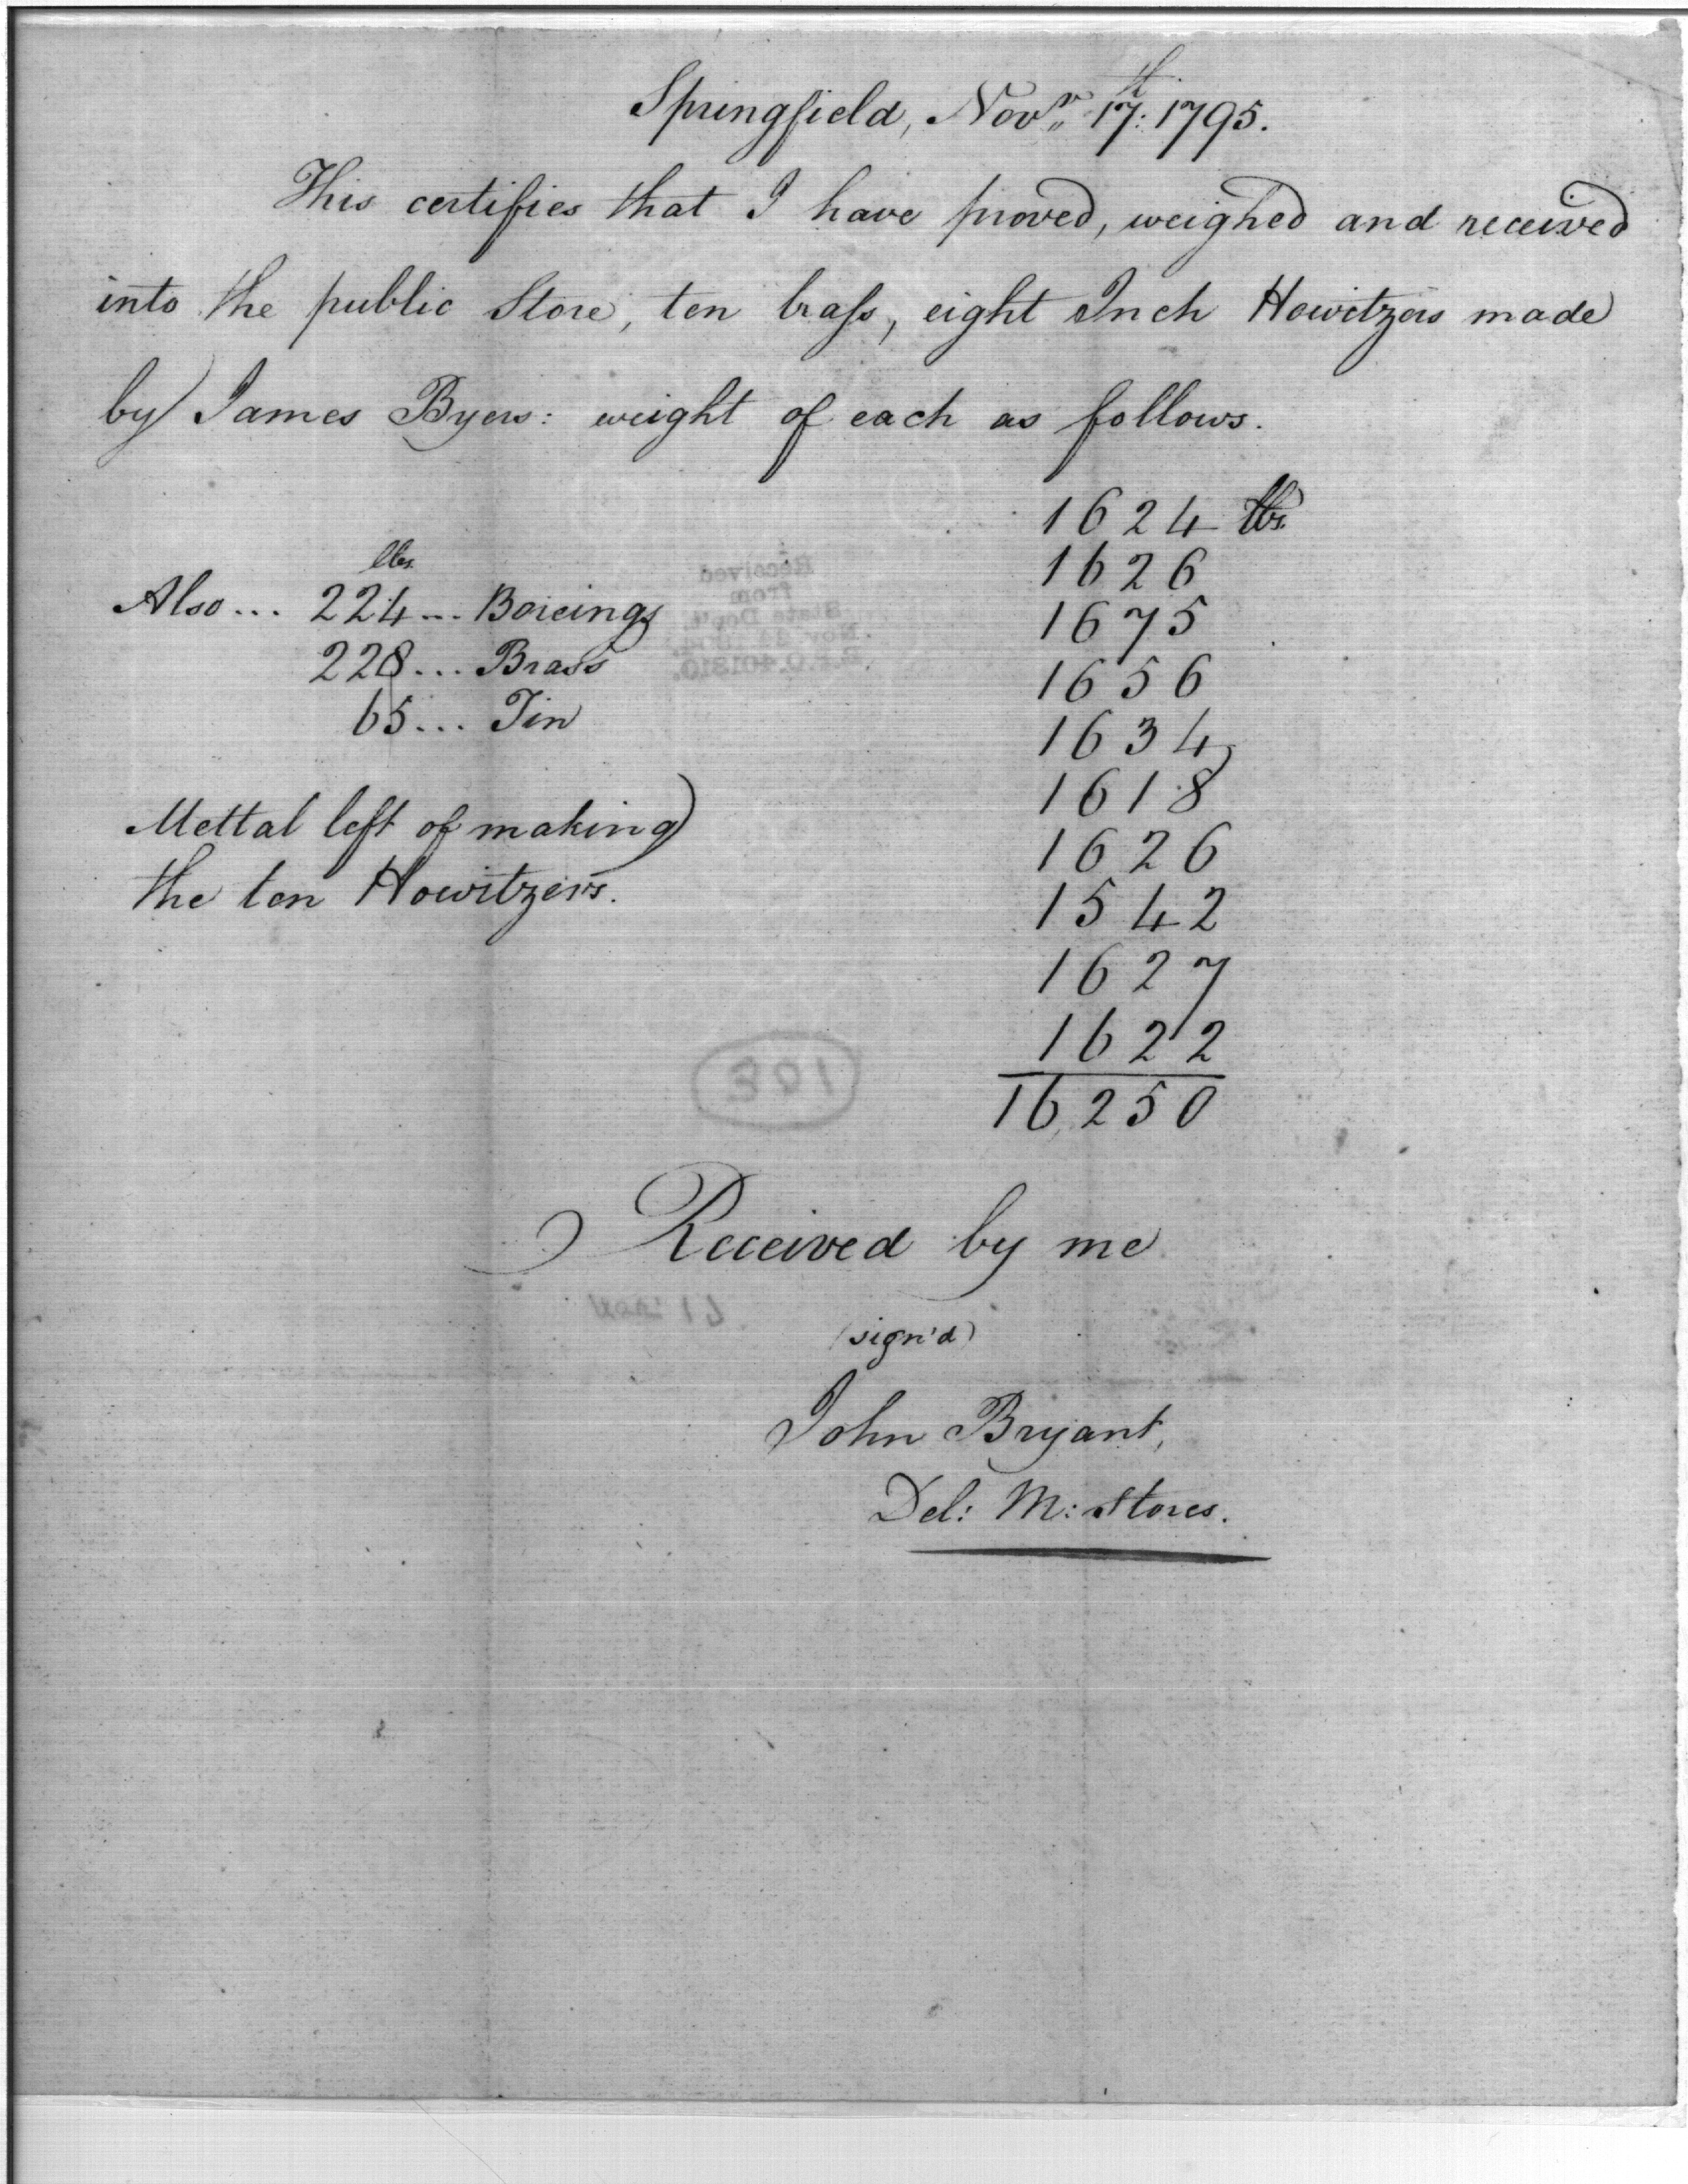 Springfield, Novr. 17th: 1795.
This certifies that I have proved, weighed and received
into the public Store, ten brass, eight Inch Howitzers made
by James Byers: weight of each as follows.
1624 lbs.
1626
1675
1656
1634
1618
1626
1542
1627
1622
16,250
lbs.
Also... 224... Boreings
228... Brass
65... Tin
Mettal left of making
the ten Howitzers.
Received
from
State Dep't.
301
Received by me
(sign'd)
John Bryant,
Del: M: Stores.